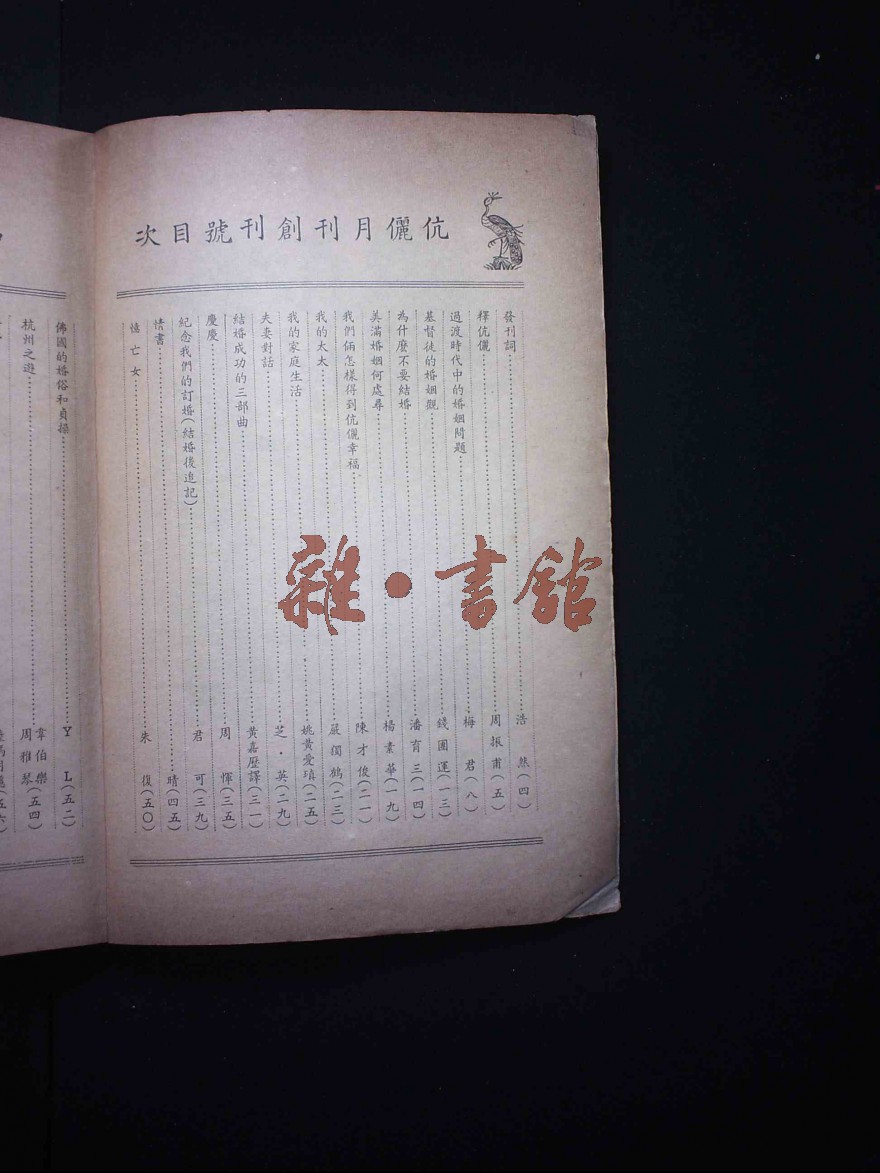 伉儷月刊創刊號目次
發刊詞 浩然(四)
釋伉儷 周振甫(五)
過渡時代中的婚姻問題 梅君(八)
基督徒的婚姻觀 錢團運(一三)
為什麼不要結婚 潘育三(一四)
美滿婚姻何處尋 楊素華(一九)
我們倆怎樣得到伉儷幸福 陳才俊(二一)
我的太太 嚴獨鶴(二三)
我的家庭生活 姚黃愛瑱(二五)
夫妻對話 芝·英(二九)
結婚成功的三部曲 黃嘉歷譯(三一)
慶慶 周惲(三五)
紀念我們的訂婚(結婚後追記) 君可(三九)
情書 晴(四五)
憶亡女 朱復(五〇)
佛國的婚俗和貞操 YL(五二)
杭州之遊 韋伯樂 周雅琴(五四)
雜·書館